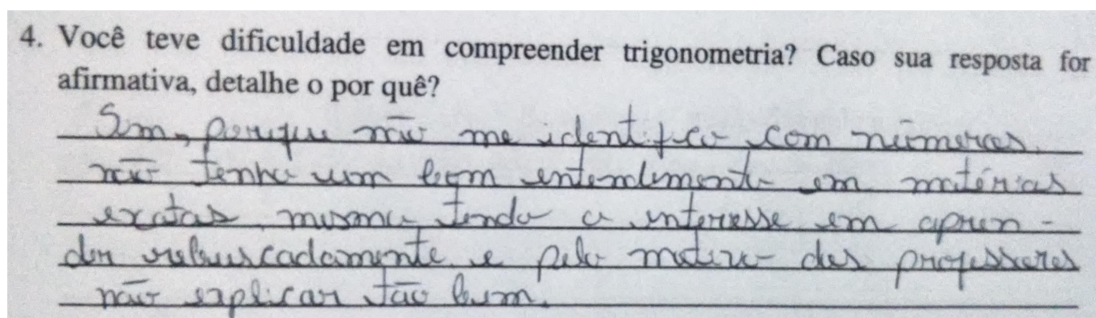 4. Você teve dificuldade em compreender trigonometria? Caso sua resposta for
afirmativa, detalhe o por quê?
Sim, porque não me identifico com números.
não tenho um bom entendimento em matérias
exatas, mesmo tendo o interesse em apren-
der rebuscadamente e pelo motivo dos professores
não explicar tão bem.